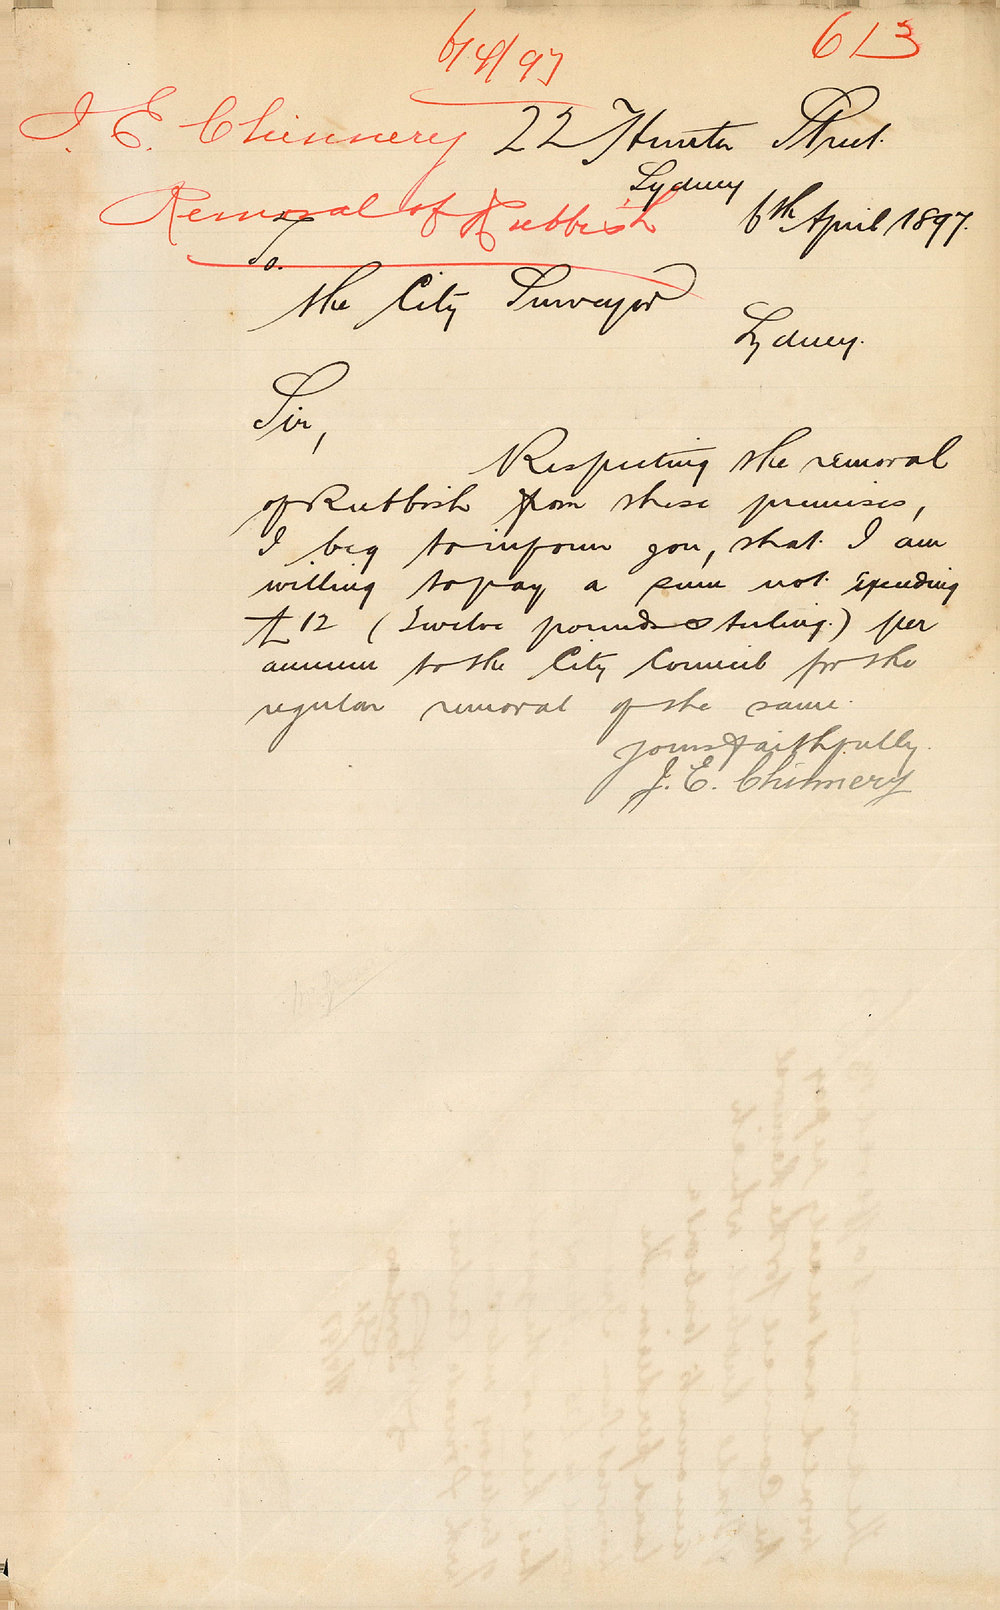 6/4/97
613
J. E. Chinnery
22 Hunter Street.
Sydney
Removal of Rubbish
6th April 1897.
To.
the City Surveyor
Sydney.
Sir,
Respecting the removal
of Rubbish from these premises,
I beg to inform you, that I am
willing to pay a sum not exceeding
£12 (Twelve pounds sterling.) per
annum to the City Council for the
regular removal of the same.
yours faithfully.
J. E. Chinnery